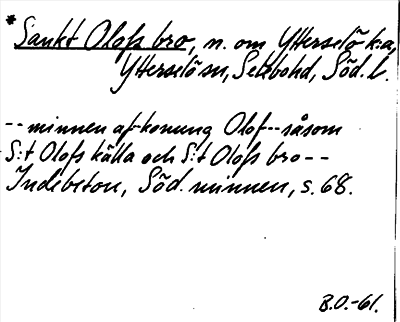 *Sankt Olofs bro, n. om Ytterselö k:a,
Ytterselö sn, Selebohd, Söd. l.
-- minnen af konung Olof -- såsom
S:t Olofs källa och S:t Olofs bro --
Indebetou, Söd. minnen, s. 68.
B.O.-61.